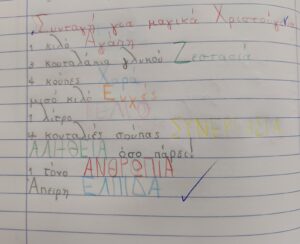 Συνταγή για μαγικά Χριστούγεννα
1 κιλό Αγάπη
3 κουταλάκια γλυκού Ζεστασιά
4 κούπες Χαρά
μισό κιλό Ευχές
1 λίτρο
4 κουταλιές σούπας ΣΥΝΕΡΓΑΣΙΑ
ΑΛΗΘΕΙΑ όσο πάρει!
1 τόνο ΑΝΘΡΩΠΙΑ
Άπειρη ΕΛΠΙΔΑ